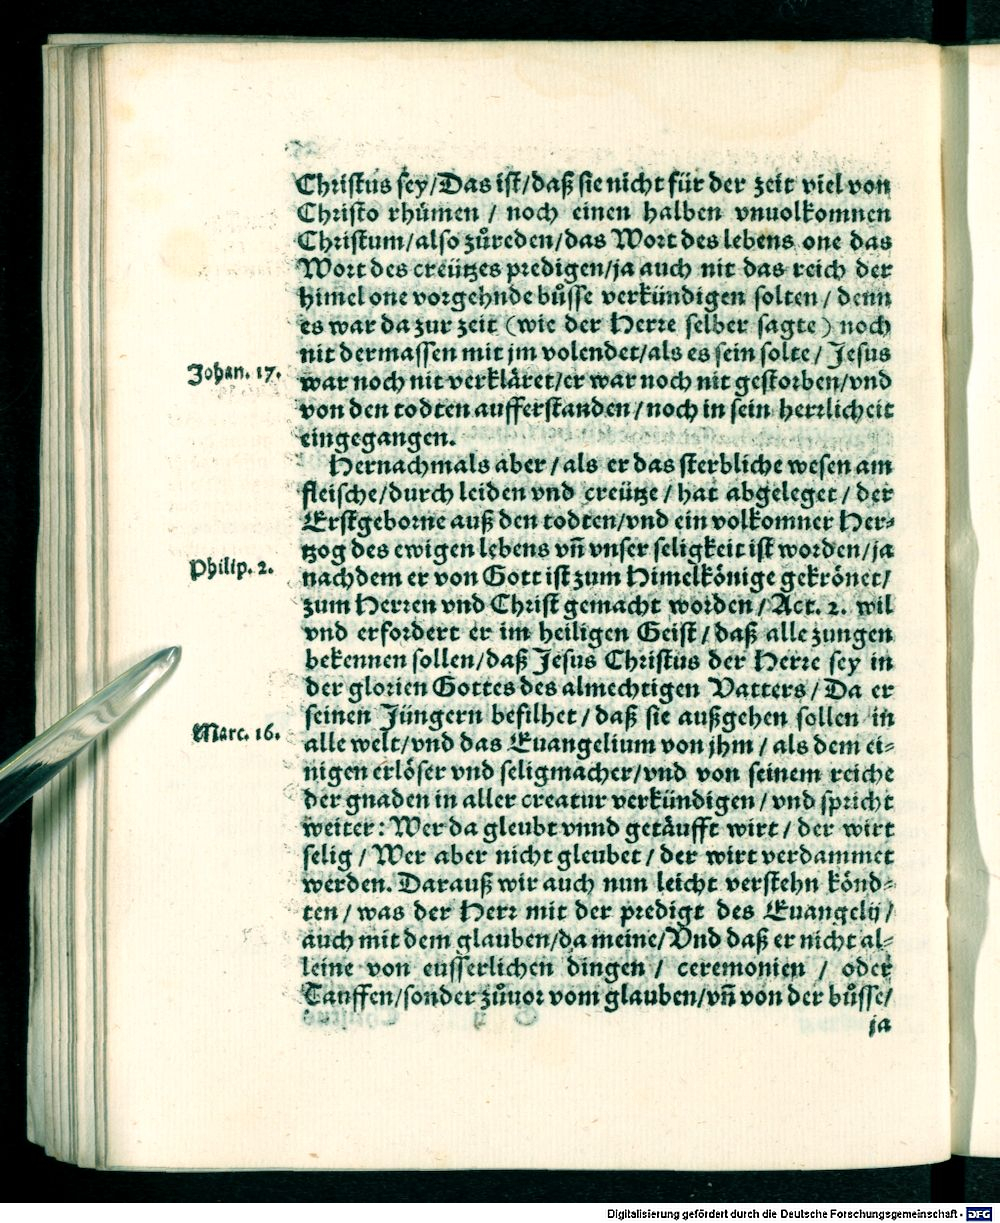 Christus sey/Das ist/daß sie nicht für der zeit viel von
Christo rhümen / noch einen halben vnuolkomnen
Christum/also zůreden/das Wort des lebens one das
Wort des creützes predigen/ja auch nit das reich der
himel one vorgehnde bůsse verkündigen solten / denn
es war da zur zeit (wie der Herre selber sagte) noch
nit dermassen mit jm volendet/als es sein solte / Jesus
Johan. 17.
war noch nit verkläret/er war noch nit gestorben/vnd
von den todten aufferstanden / noch in sein herrlicheit
eingegangen.
Hernachmals aber / als er das sterbliche wesen am
fleische/durch leiden vnd creütze / hat abgeleget / der
Erstgeborne auß den todten/vnd ein volkomner Her=
tzog des ewigen lebens vñ vnser seligkeit ist worden/ja
Philip. 2.
nachdem er von Gott ist zum Himelkönige gekrönet/
zum Herren vnd Christ gemacht worden / Act. 2. wil
vnd erfordert er im heiligen Geist / daß alle zungen
bekennen sollen/daß Jesus Christus der Herre sey in
der glorien Gottes des almechtigen Vatters / Da er
seinen Jüngern befilhet / daß sie außgehen sollen in
Marc. 16.
alle welt/vnd das Euangelium von jhm / als dem ei=
nigen erlöser vnd seligmacher/vnd von seinem reiche
der gnaden in aller creatur verkündigen / vnd spricht
weiter: Wer da gleubt vnnd getäufft wirt / der wirt
selig / Wer aber nicht gleubet / der wirt verdammet
werden. Darauß wir auch nun leicht verstehn könd=
ten / was der Herr mit der predigt des Euangelij /
auch mit dem glauben/da meine/Vnd daß er nicht al=
leine von eusserlichen dingen / ceremonien / oder
Tauffen/sonder zůuor vom glauben/vñ von der bůsse/
ja
Digitalisierung gefördert durch die Deutsche Forschungsgemeinschaft - DFG